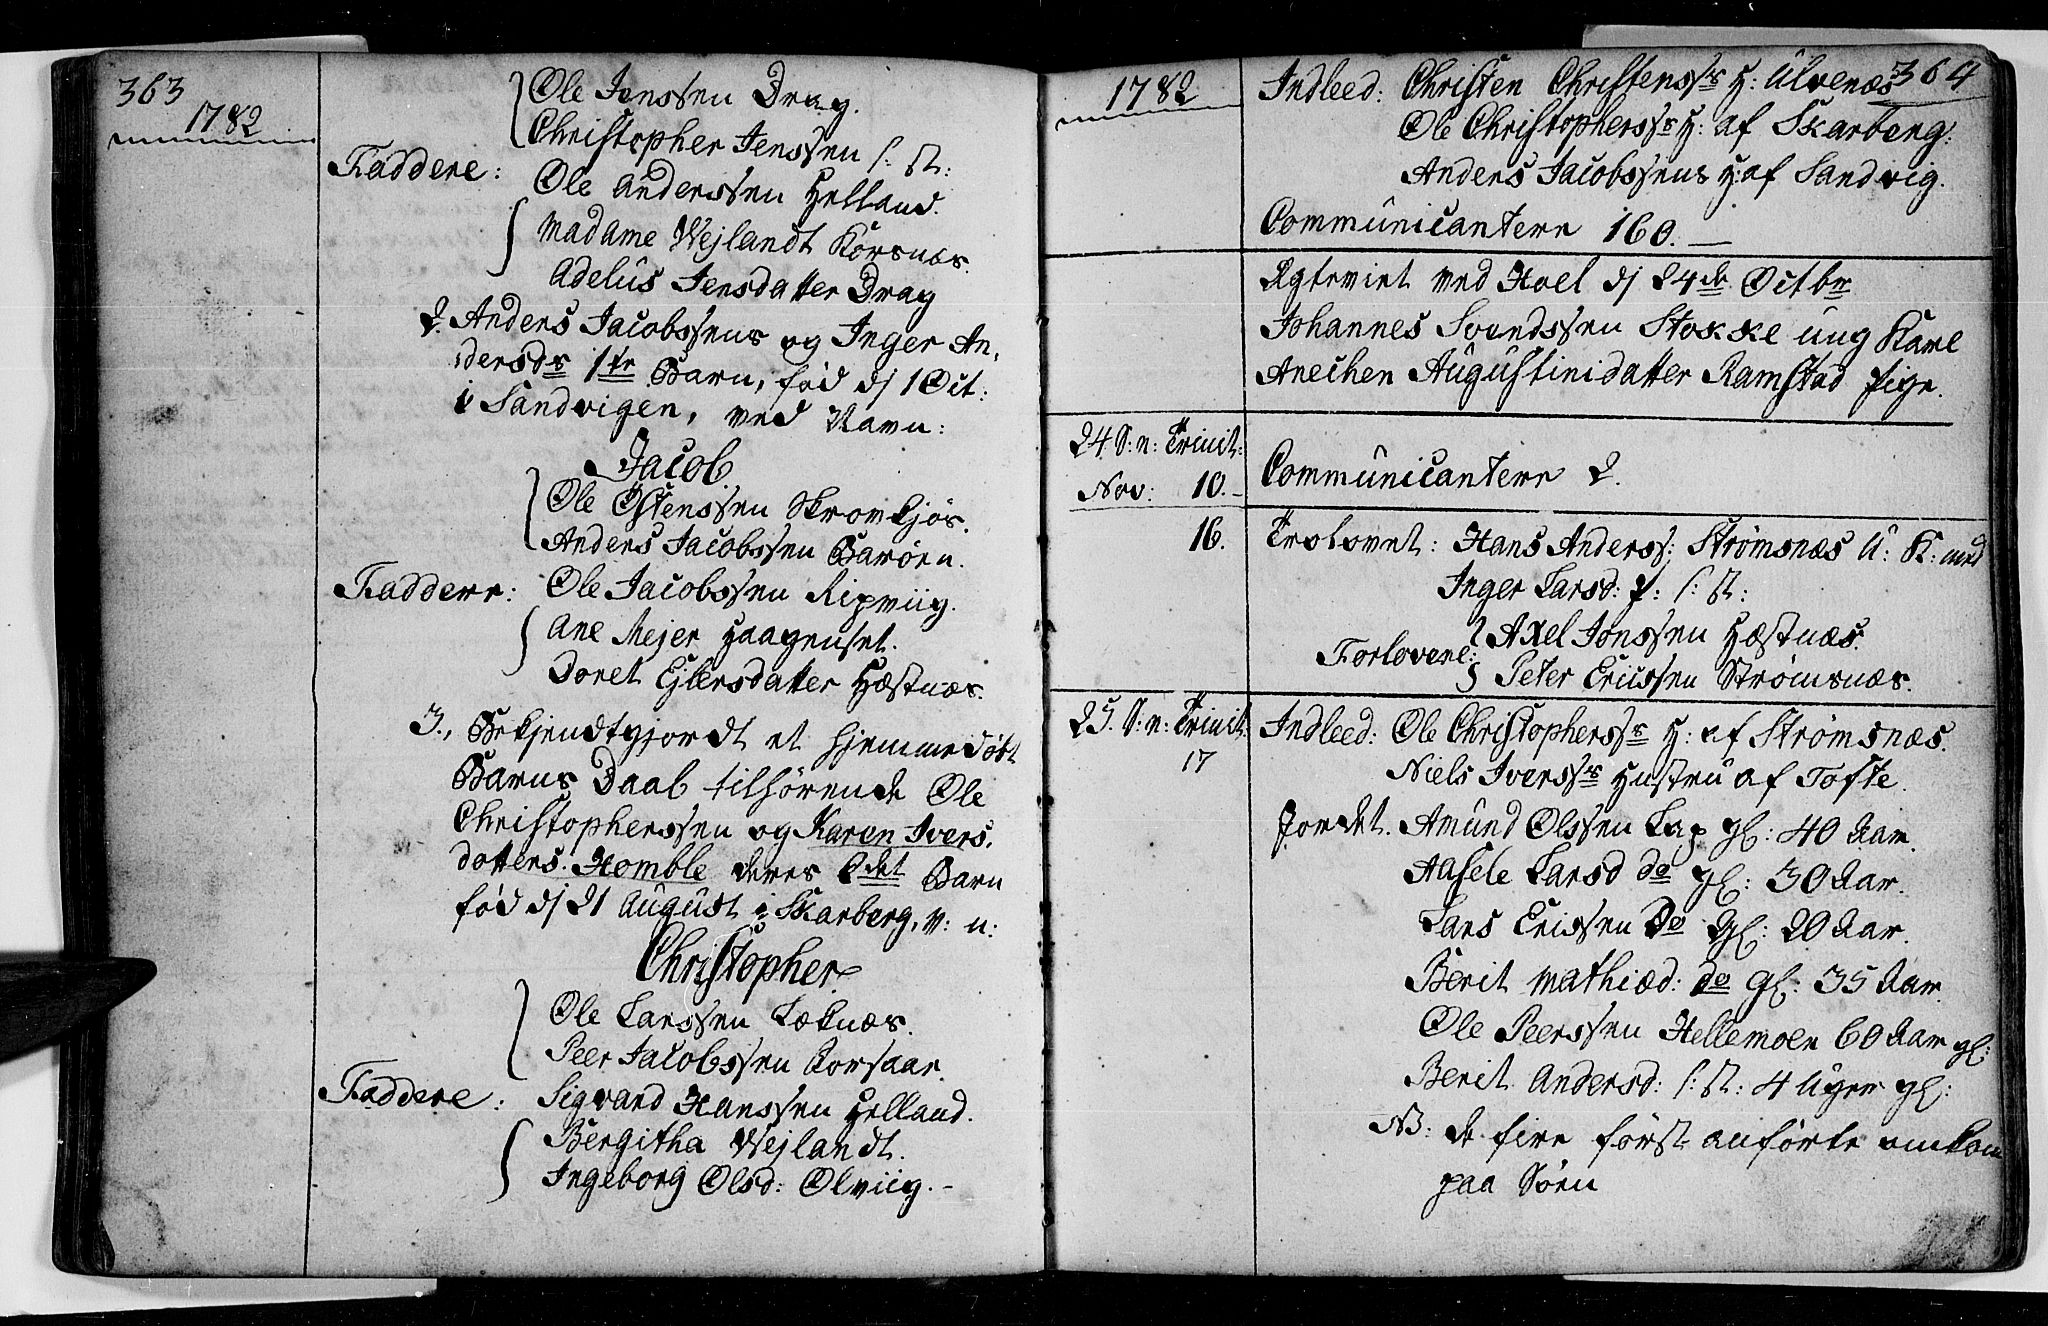 363
1782
Ole Jenssen Drag.
Christopher Jenssen s: st:
Faddere: Ole Anderssen Helland.
Madame Wejlandt Korsnæs.
Adelus Jensdatter Drag
2. Anders Jacobssens og Inger An,
dersdr 1te Barn, fød dj 1 Oct:
i Sandvigen, ved Navn:
Jacob
Ole Østenssen Skromkjos.
Anders Jacobssen Barøen.
Faddere: Ole Jacobssen Ripviig.
Ane Mejer Haagenset.
Doret Ejlersdatter Hæstnæs.
3., Bekjendtgjordt et hjemmedøbt
Barns Daab tilhørende Ole
Christopherssen og Karen Ivers,
datters. Homble deres 2det Barn
fød dj 21 August i Skarberg, v: n:
Christopher
Ole Larssen Læknæs.
Peer Jacobssen Korsaar.
Faddere: Sigvard Hanssen Helland.
Bergitha Wejlandt.
Ingeborg Olsd: Olviig. -
364
1782
Indleed: Christen Christenssrs H: Ulvenæs
Ole Christopherssrs H: af Skarberg:
Anders Jacobssens H: af Sandvig.
Communicantere 160. —
Egteviet ved Hoel dj 24de Octbr
Johannes Svendssen Stokke ung Karl
Anechen Augustinidatter Ramstad Pige.
24 S: n: Trinit:
Nov: 10. - Communicantere 2.
16. Trolovet: Hans Anderss: Strømsnæs U: K: med
Inger Larsd: P: s: st:
Forlovere: Axel Jonssen Hæstnæs.
Peter Ericssen Strømsnæs.
25. S: n: Trinit: Indleed: Ole Christopherssrs H: af Strømsnæs.
17 Niels Iverssrs Hustru af Tofte.
Jordet. Amund Olssen Lap gl: 40 Aar.
Aasele Larsd do gl: 30 Aar.
Lars Erissen Do gl: 20 Aar.
Berit Mathiæd: do gl: 35 Aar.
Ole Peerssen Hellemoen 60 Aar gl:
Berit Andersd: s: st: 4 Uger gl:
NB: de fire først anførte omkom
paa Søen